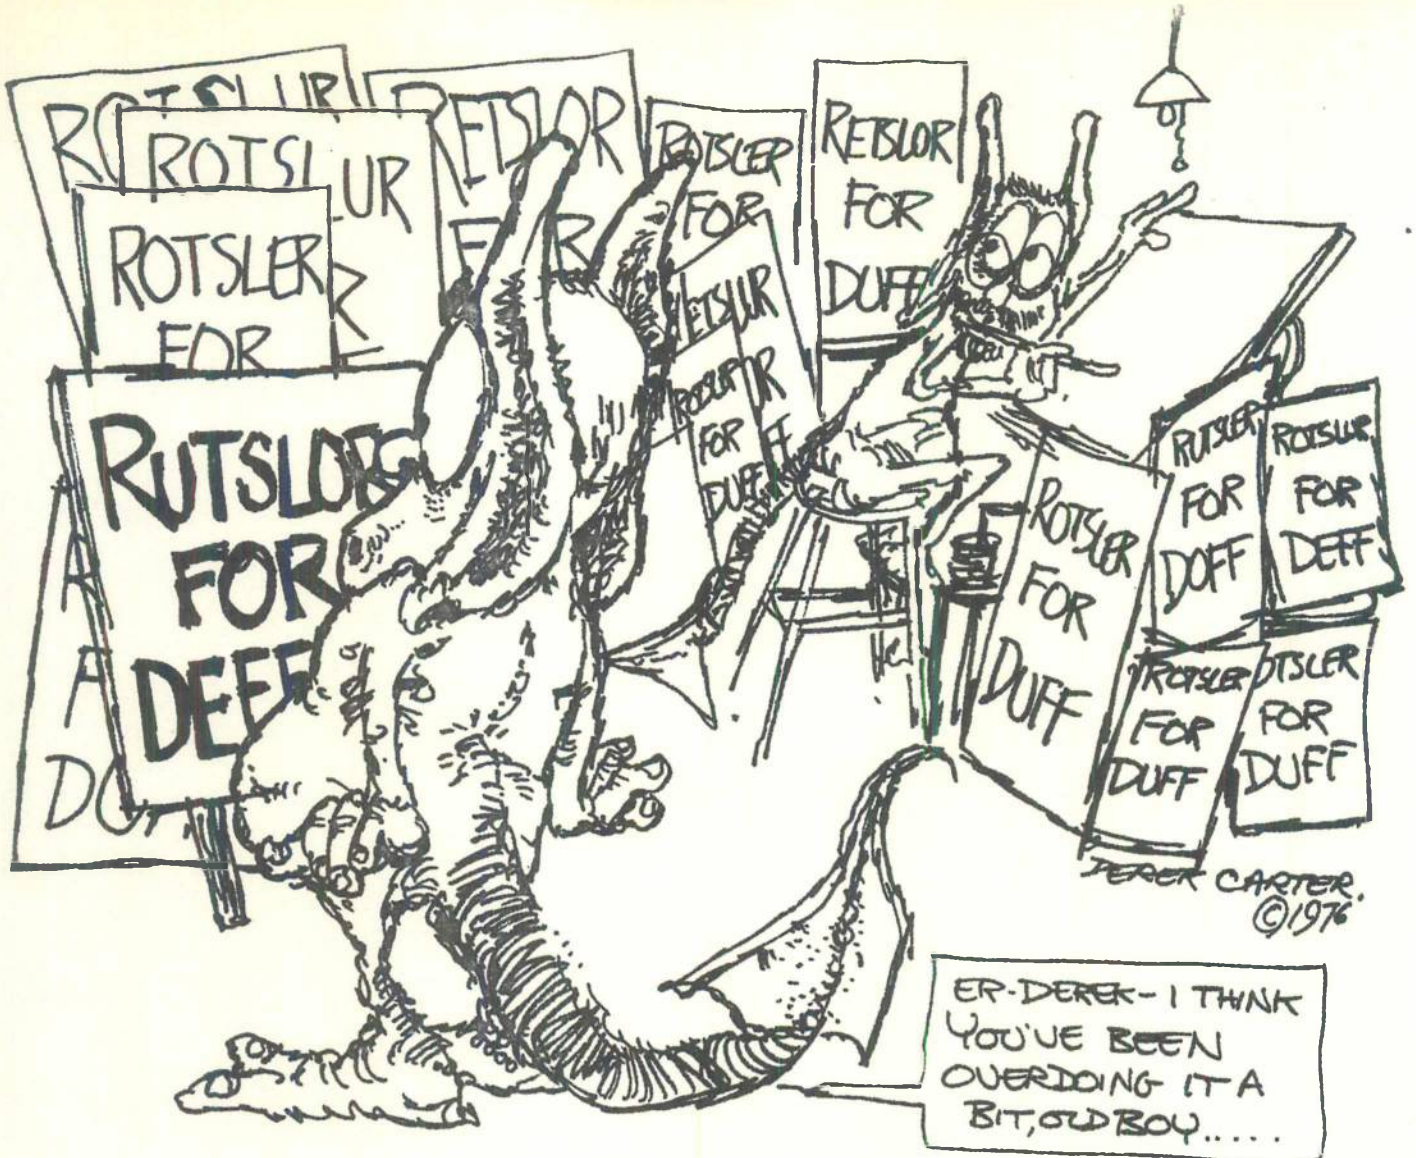 ROTSLUR
ROTSLUR
ROTSLER
FOR
RUTSLORG
FOR
DEFF
RETSLOR
ROTSLER
FOR
RETSLOR
FOR
DUFF
RETSLUR
FOR
DUFF
ROTSLER
FOR
DUFF
RUTSLER
FOR
DOFF
ROTSLUR
FOR
DEFF
ROTSLER
FOR
DUFF
OTSLER
FOR
DUFF
DEREK CARTER.
©1976
ER-DEREK-I THINK
YOU'VE BEEN
OVERDOING IT A
BIT, OLD BOY.....